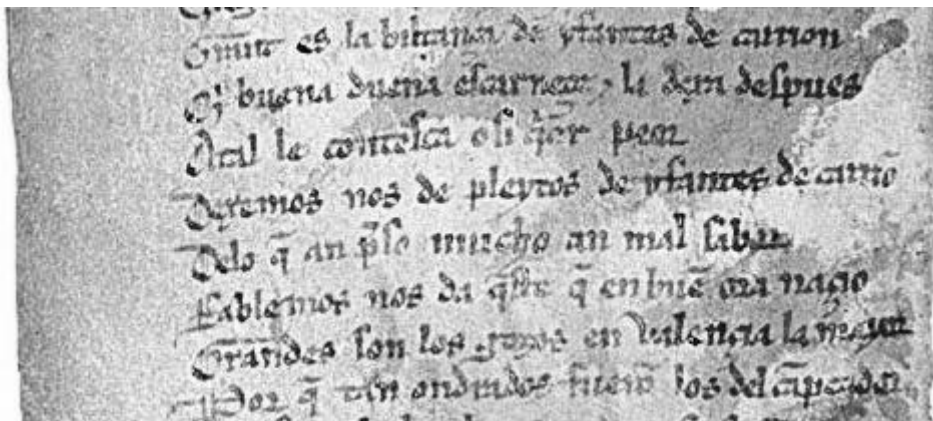 Grant es la biltança de yfantes de carrion
Qi buena duena escarneçe ⁊ la dexa despues
Atal le contesca o si q̄er peor
Dexemos nos de pleytos de yfantes de carriō
Delo q̄ an p̄so mucho an mal sabor
Fablemos nos da q̄ste q̄ en buē ora naçio
Grandes son los gozos en valençia la mayor
Por q̄ tan ondrados fuerō los del cāpeador